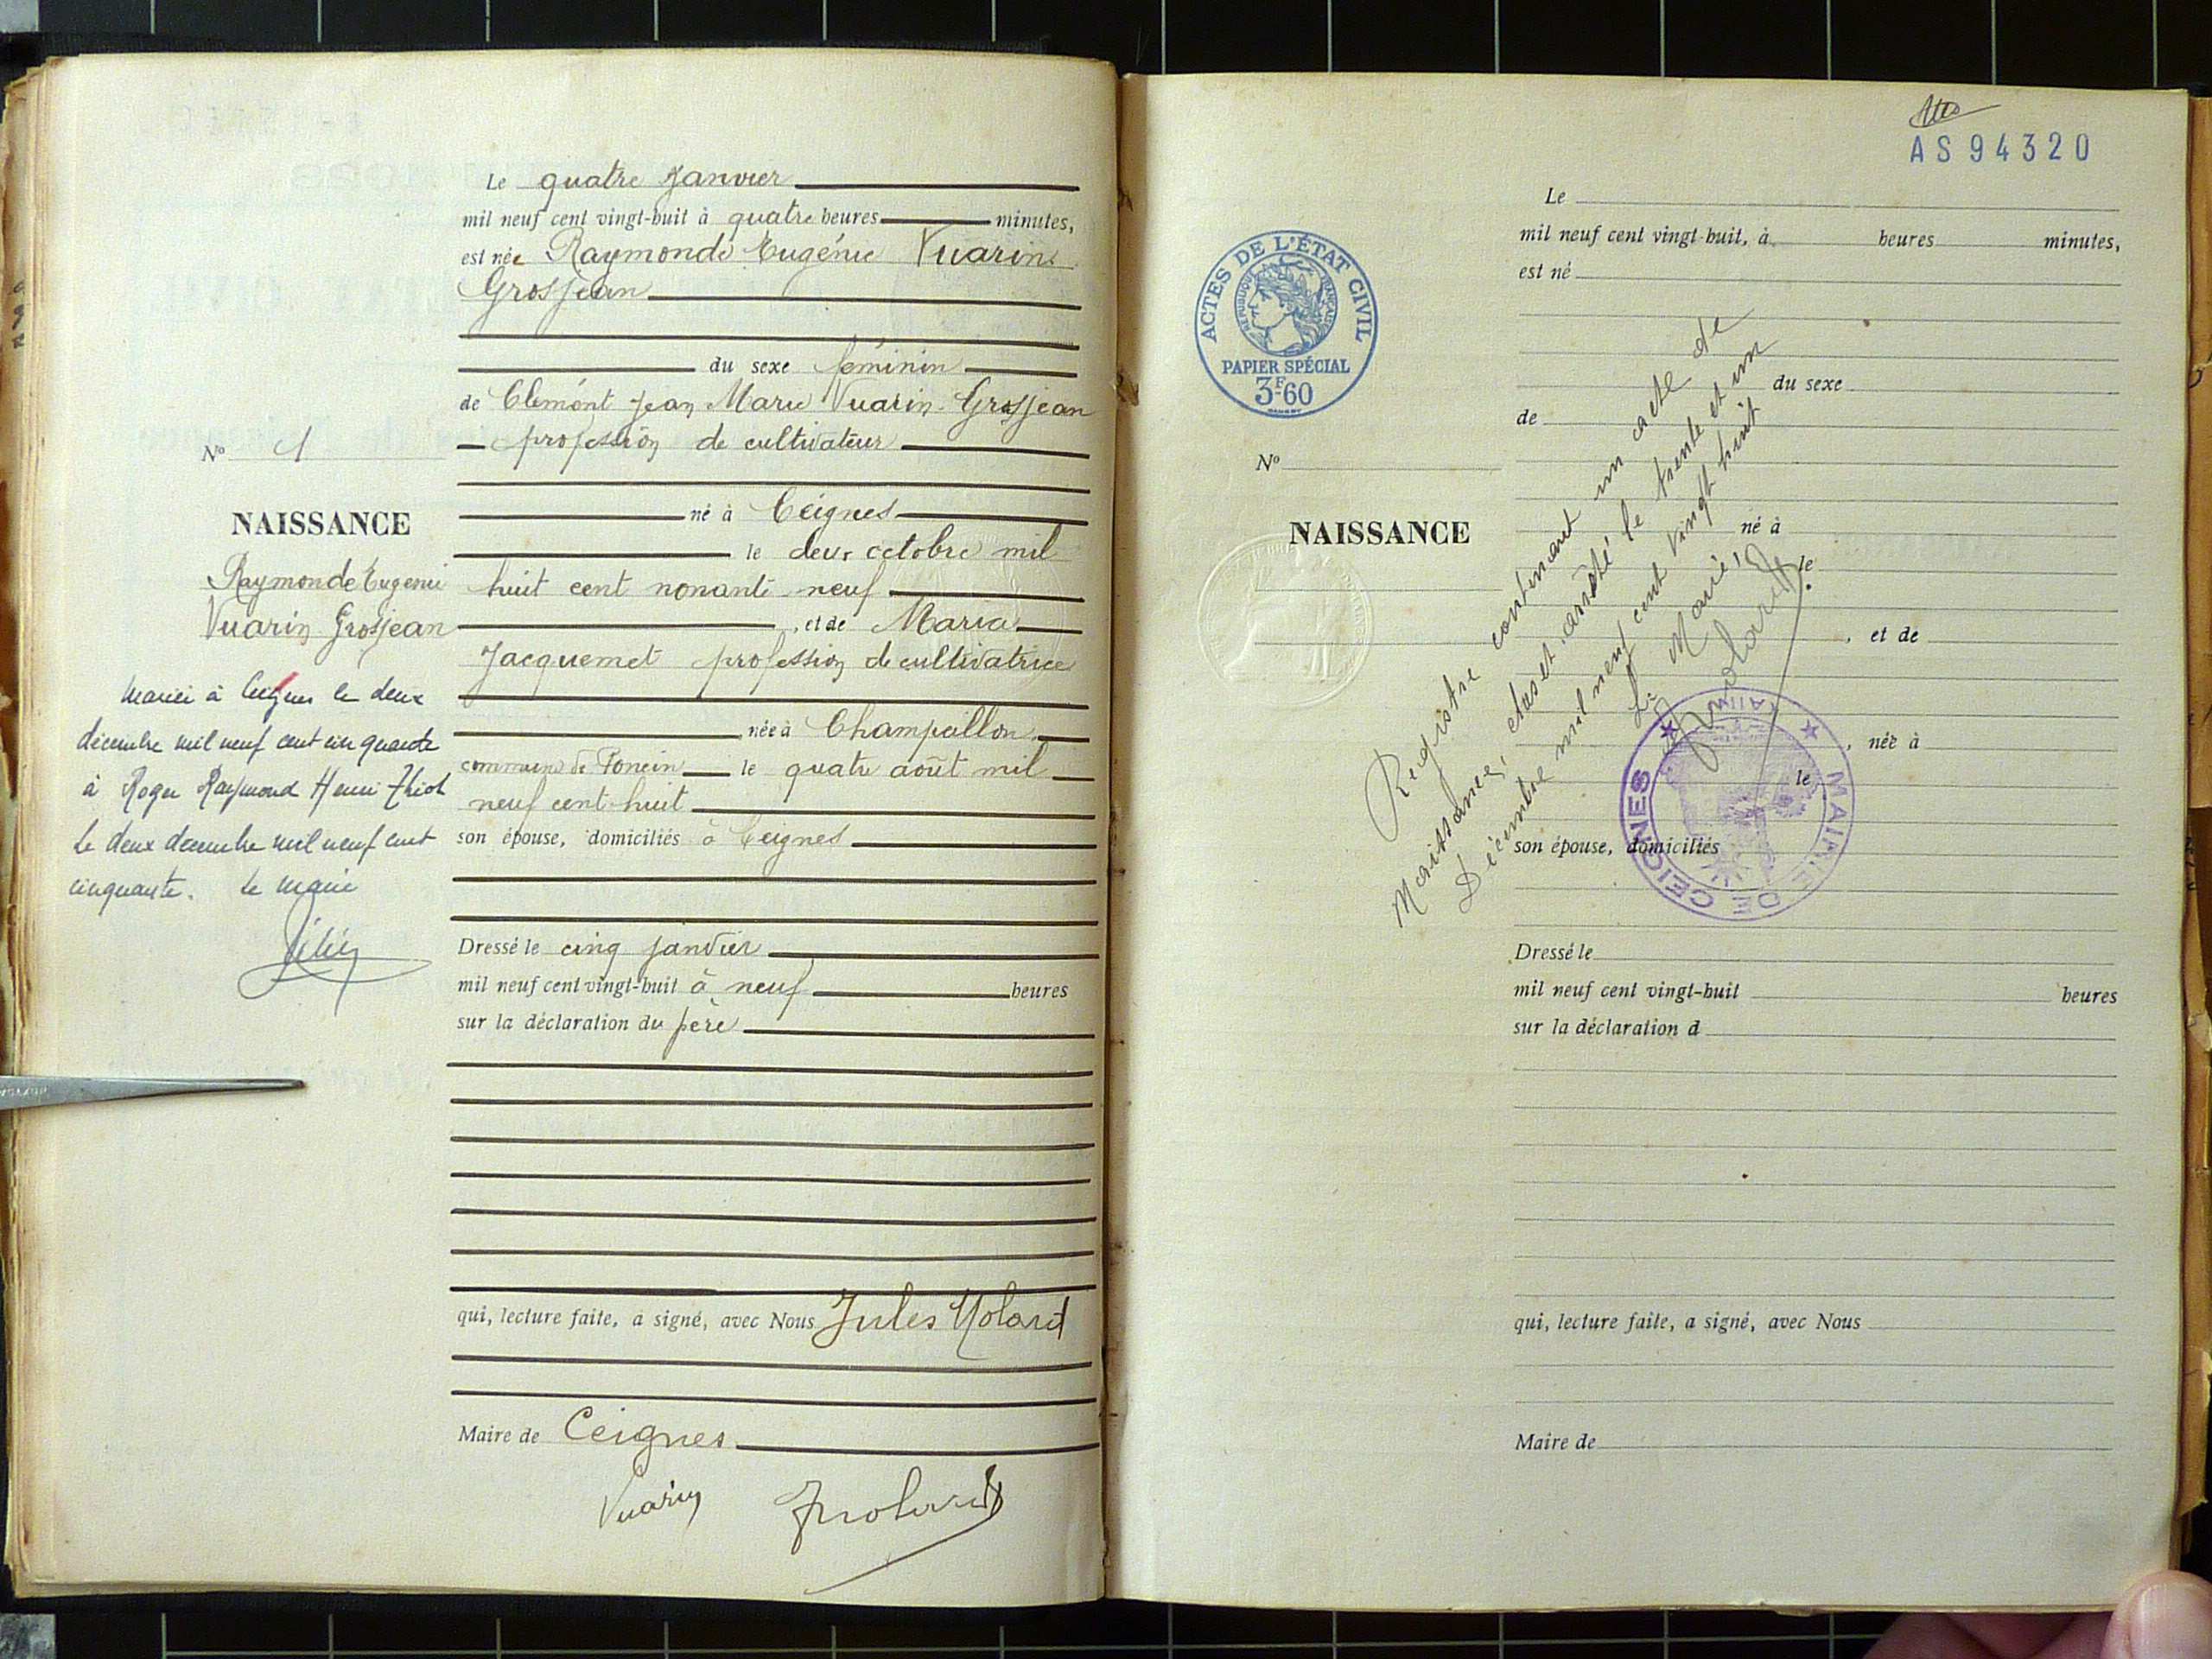 Le quatre Janvier
mil neuf cent vingt-huit à quatre heures minutes,
est née Raymonde Eugénie Vuarin
Grosjean
du sexe féminin
de Clément Jean Marie Vuarin-Grosjean
profession de cultivateur
né à Ceignes
le deux octobre mil
huit cent nonante-neuf
, et de Maria
Jacquemet profession de cultivatrice
née à Champeillon
commune de Poncin le quatre août mil
neuf cent huit
son épouse, domiciliés à Ceignes
Dressé le cinq janvier
mil neuf cent vingt-huit à neuf heures
sur la déclaration du père
qui, lecture faite, a signé, avec Nous Jules Molard
Maire de Ceignes
Vuarin Jmolard
No 1
NAISSANCE
Raymonde Eugénie
Vuarin Grosjean
Mariée à Ceignes le deux
décembre mil neuf cent cinquante
à Roger Raymond Henri
le deux décembre mil neuf cent
cinquante. Le Maire
AS 94320
ACTES DE L'ÉTAT CIVIL
RÉPUBLIQUE FRANÇAISE
PAPIER SPÉCIAL
3F60
No
NAISSANCE
Le
mil neuf cent vingt-huit, à heures minutes,
est né
du sexe
de
né à
le
, et de
, née à
le
son épouse, domiciliés
Dressé le
mil neuf cent vingt-huit heures
sur la déclaration d
qui, lecture faite, a signé, avec Nous
Maire de
Registre contenant un acte de
Naissance, clos et arrêté le trente et un
Décembre mil neuf cent vingt huit
Le Maire,
Jmolard
MAIRIE DE CEIGNES
(AIN)